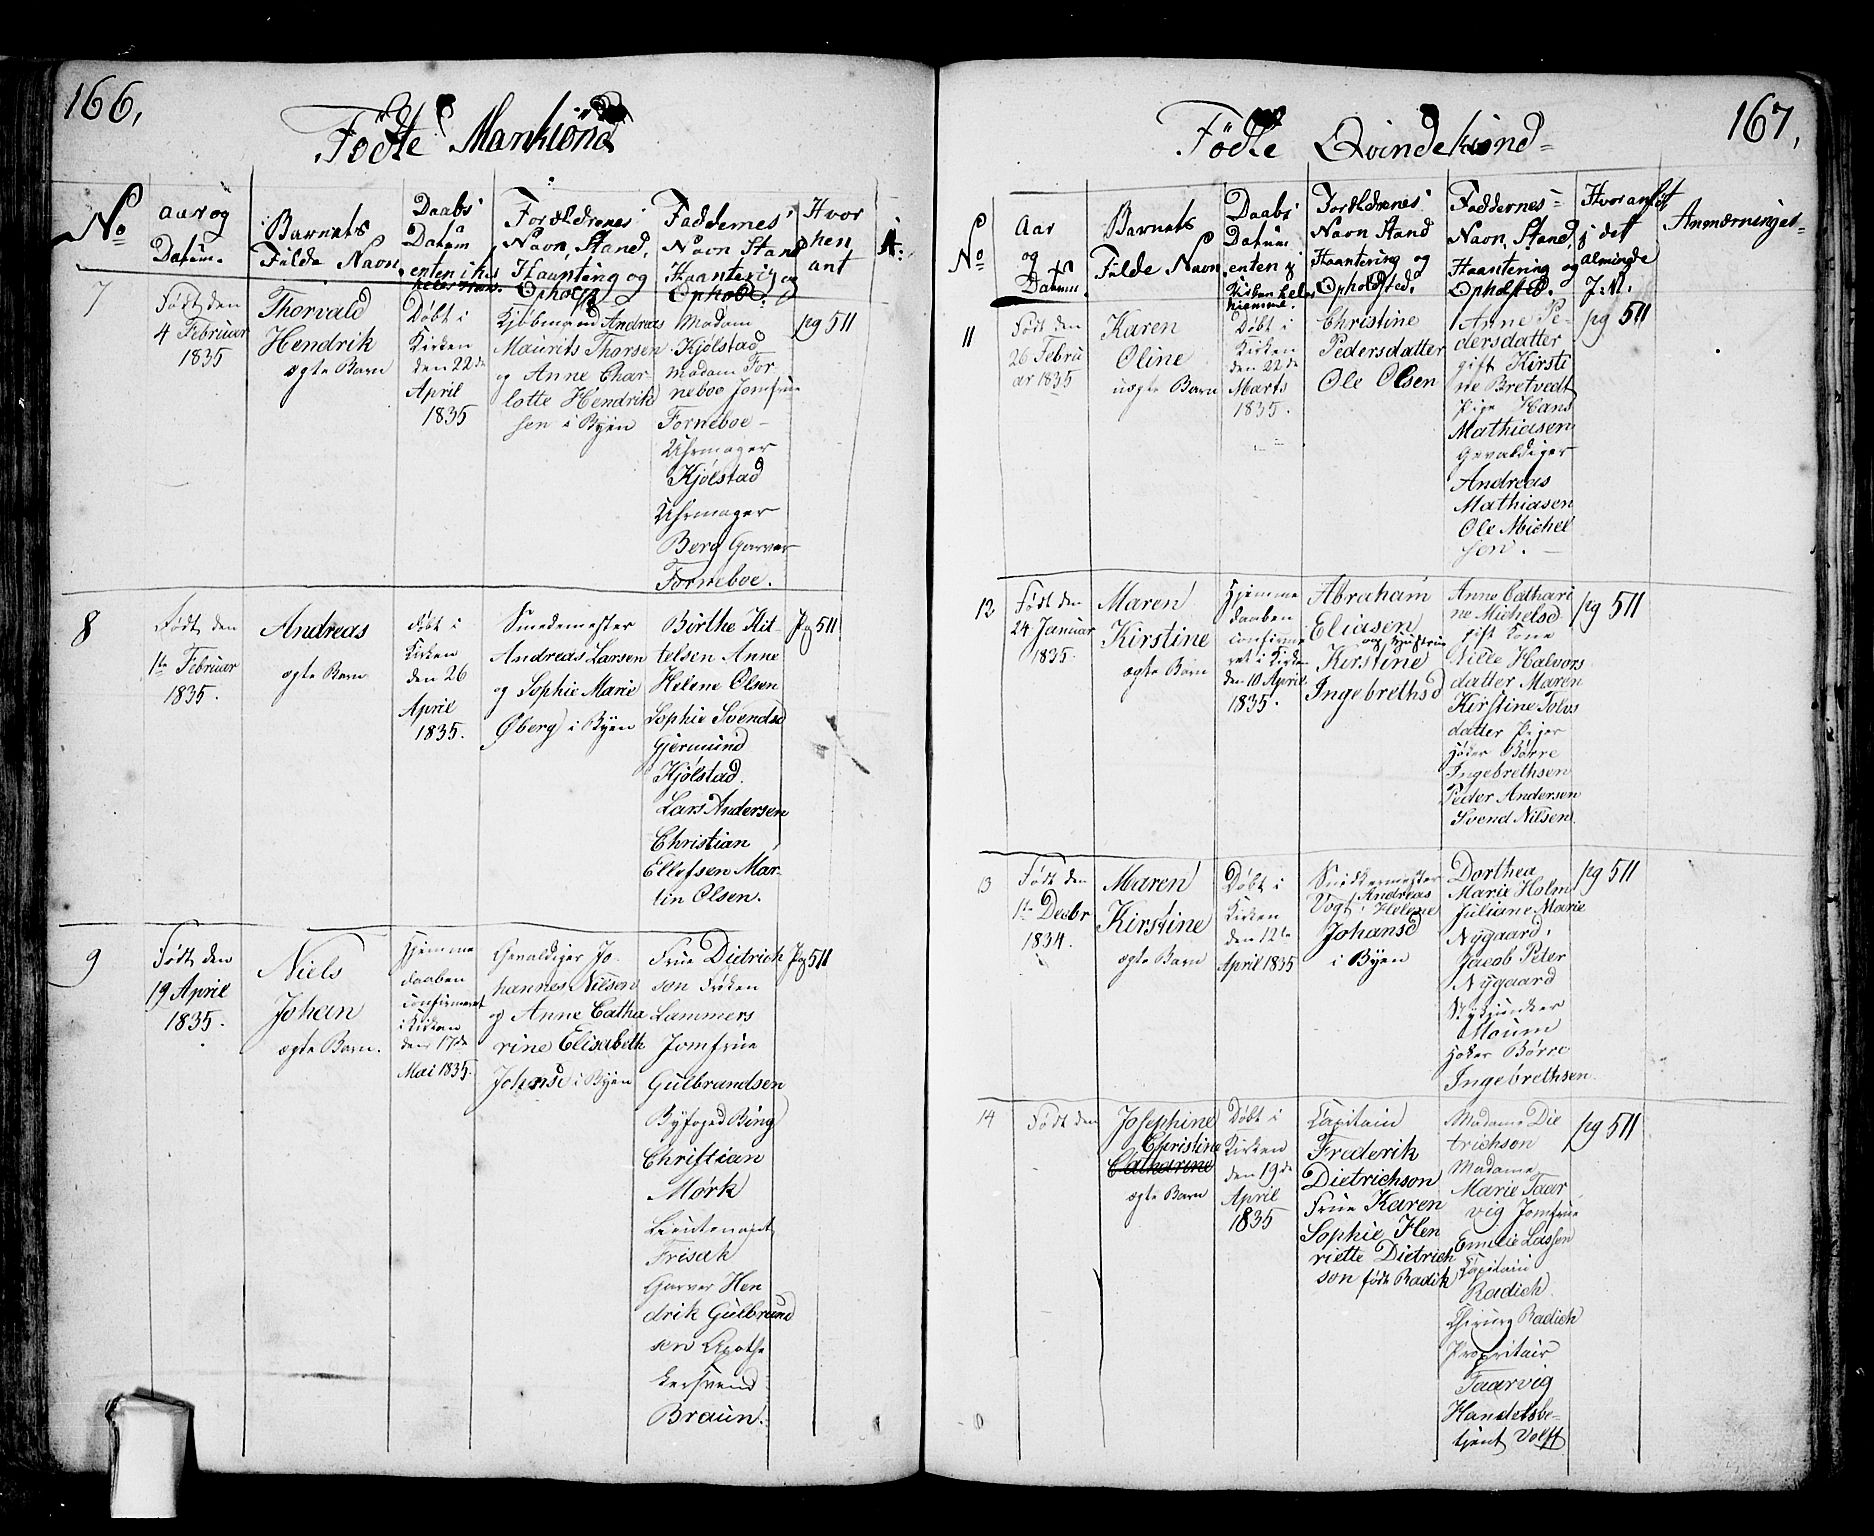 166,
Födte Mankiönd
No
Aar og
Datum.
Barnets
Fulde Navn
Daabs
Datum
enten i kir
Forældrenes
Navn, Stand,
Haantering og
Ophold
Faddernes
Navn Stand
Haantering og
Ophold.
Hvor
hen
ant
A:
7
Født den
4 Februar
1835
Thorvald
Hendrik
ægte Barn
Døbt i
Kirken
den 22de
April
1835
Kjöbmand Andreas
Maurits Thorsen
og Anne Char-
lotte Hendrik
sen i Byen
Madam
Kjölstad
Madam For
neboe Jomfrue
Forneboe
Uhrmager
Kjölstad
Uhrmager
Berg Garver
Forneboe.
pg 511
8
Født den
1te Februar
1835.
Andreas
ægte Barn
døbt i
Kirken
den 26
April
1835.
Smedemester
Andreas Larsen
og Sophie Marie
Øberg i Byen
Birthe Kit-
telsen Anne
Helene Olsen
Sophie Svendsd
Gjermund
Kjölstad.
Lars Andersen
Christian
Ellefsen Mar-
tin Olsen.
Pg 511
9
Født den
19 April
1835.
Niels
Johan
ægte Barn.
Hjemme
daaben
confirmeret
i Kirken
den 17de
Mai 1835.
Gevaldiger Jo
hannes Nilsen
og Anne Catha
rine Elisabeth
Johnsd i Byen
Frue Dietrich
son Frøken
Lammers
Jomfrue
Gulbrandsen
Byfoged Bing
Christian
Mörk
Lieutenant
Frisak
Garver Hen
drik Gulbrand
sen Apothe
kersvend
Braun.
Pg 511
167,
Födte Qvindekiönd
No
Aar
og
Datum.
Barnets
Fulde Navn
Daabs
Datum
enten i
Kirken eller
hiemme.
Forældrenes
Navn Stand
Haantering og
Opholdsted.
Faddernes
Navn, Stand,
Haantering og
Opholsted.
Hvor anført
i det
almindе
J.R.
Anmærninger
11
Født den
26 Febru
ar 1835
Karen
Oline
uægte Barn
Døbt i
Kirken
den 22de
Marts
1835.
Christine
Pedersdatter
Ole Olsen
Anne Pe-
dersdatter
gift Kirste
ne Bretvedt
Pige Hans
Mathiasen
Gevaldiger
Andreas
Mathiasen
Ole Michel
sen.
pg 511
12
Født den
24 Januar
1835.
Maren
Kirstine
ægte Barn
Hjemme
daaben
confirme
ret i Kirken
den 10 April
1835.
Abraham
Eliasen
og Hustrue
Kirstine
Ingebrethsd
Anne Cathari
ne Michelsd
gift Kone
Nille Halvors
datter Maren
Kirstine Tolvs
datter Piger
Høker Börre
Ingebrethsen
Peder Andersen
Svend Nilsen.
pg 511
13
Født den
1te Decbr
1834.
Maren
Kirstine
ægte Barn
Døbt i
Kirken
den 12te
April 1835
Snedkermester
Andreas
Vogt Helene
Johansd
i Byen
Dorthea
Marie Holm
Juliane Marie
Nygaard,
Jacob Peter
Nygaard
Moum
Høker Börre
Ingebrethsen.
pg 511
14
Født den
Josephine
Christine
Catharine
ægte Barn
Døbt i
Kirken
den 19de
April
1835
Capitain
Frederik
Dietrichson
Frue Karen
Sophie Hen
riette Dietrich
son født Radik
Madame Die
trichson
Madame
Marie Taar
vig Jomfrue
Emelie Lassen
Capitain
Radich.
Chirurg Radich
Propritair
Taarvig
Handelsbe-
tjent Volff
pg 511